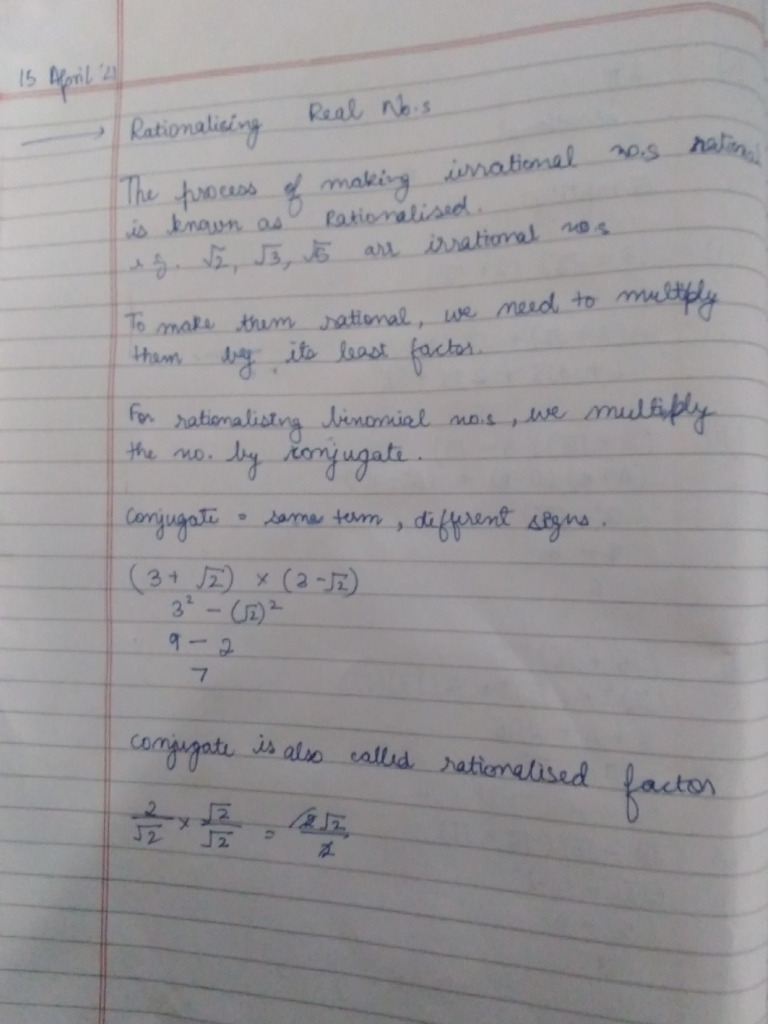 15 April '21
→ Rationalising Real No.s
The process of making irrational no.s rational
is known as Rationalised.
e.g. √2, √3, √5 are irrational no s
To make them rational, we need to multiply
them by its least factor.
For rationalising binomial no.s, we multiply
the no. by conjugate.
Conjugate = same term, different signs.
(3 + √2) × (3 - √2)
3² - (√2)²
9 - 2
7
Conjugate is also called rationalised factor
2/√2 × √2/√2 = 2√2/2